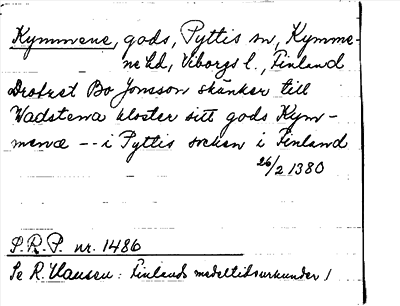 Kymmene, gods, Pyttis sn, Kymme-
ne hd, Viborgs l., Finland
Drotset Bo Jonsson skänker till
Wadstena kloster sitt gods Kym-
menæ -- i Pyttis socken i Finland
26/2 1380
S.R.P. nr. 1486
Se R. Hausen: Finlands medeltidsurkunder I